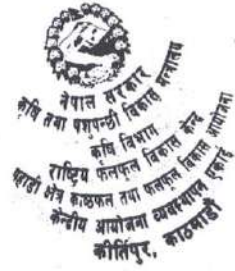 नेपाल सरकार
कृषि तथा पशुपन्छी विकास मन्त्रालय
कृषि विभाग
राष्ट्रिय फलफूल विकास केन्द्र
पहाडी क्षेत्र काष्ठफल तथा फलफूल विकास आयोजना
केन्द्रीय आयोजना व्यवस्थापन इकाई
कीर्तिपुर, काठमाडौं